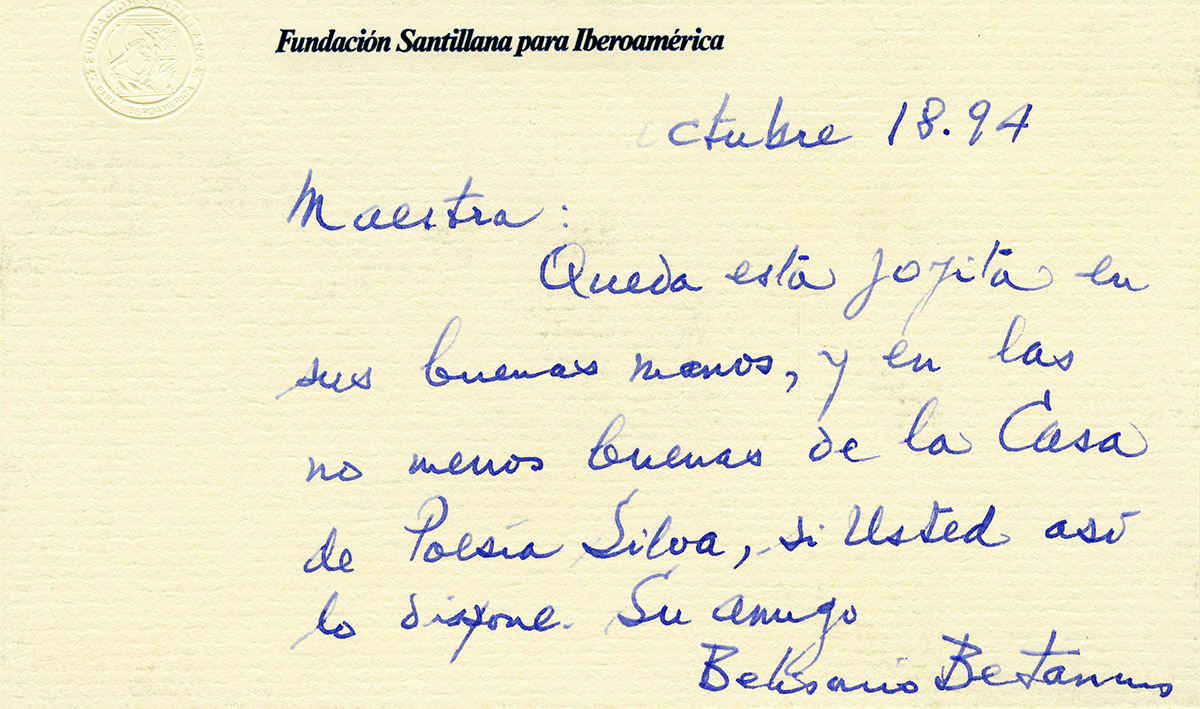 FUNDACIÓN SANTILLANA
PARA IBEROAMERICA
Fundación Santillana para Iberoamérica
octubre 18.94
Maestra:
Queda esta joyita en
sus buenas manos, y en las
no menos buenas de la Casa
de Poesía Silva, si Usted así
lo dispone. Su amigo
Belisario Betancur